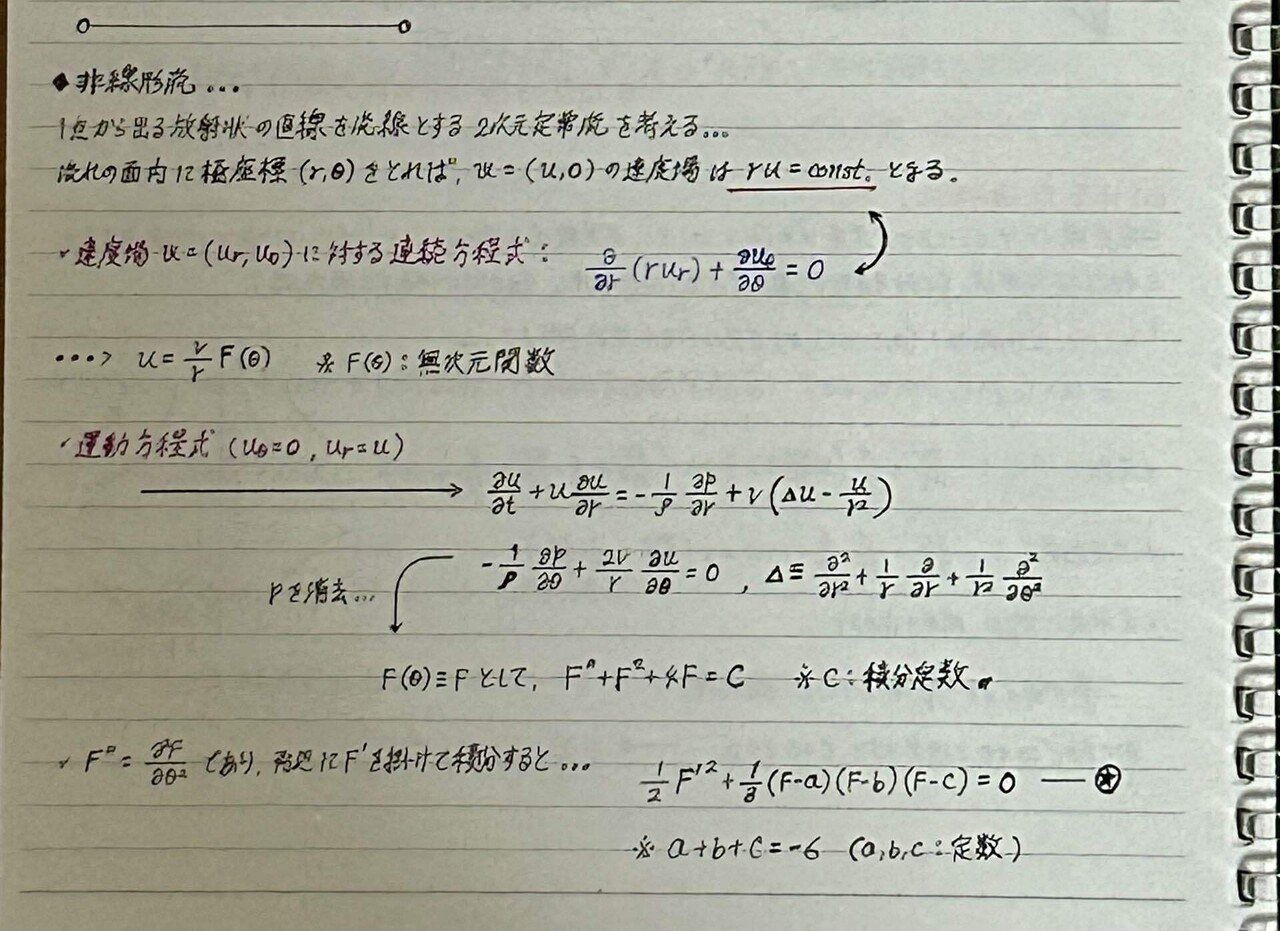 ◆ 非線形流...
1点から出る放射状の直線を流線とする2次元定常流を考える...
流れの面内に極座標(r,θ)をとれば, u=(u,0)の速度場は ru=const. となる。
✓ 速度場 u=(ur,uθ)に対する連続方程式: ∂/∂r(rur)+∂uθ/∂θ=0
...> u=ν/r F(θ) ※F(θ):無次元関数
✓ 運動方程式(uθ=0, ur=u)
∂u/∂t+u∂u/∂r=-1/ρ ∂p/∂r+ν(Δu-u/r²)
-1/ρ ∂p/∂θ+2ν/r ∂u/∂θ=0 , Δ≡∂²/∂r²+1/r ∂/∂r+1/r² ∂²/∂θ²
Pを消去...
F(θ)≡Fとして, F"+F²+4F=C ※C:積分定数。
✓ F"=∂F/∂θ²であり, 両辺にF'を掛けて積分すると...
1/2 F'²+1/3(F-a)(F-b)(F-c)=0 —⊛
※ a+b+c=-6 (a,b,c:定数)